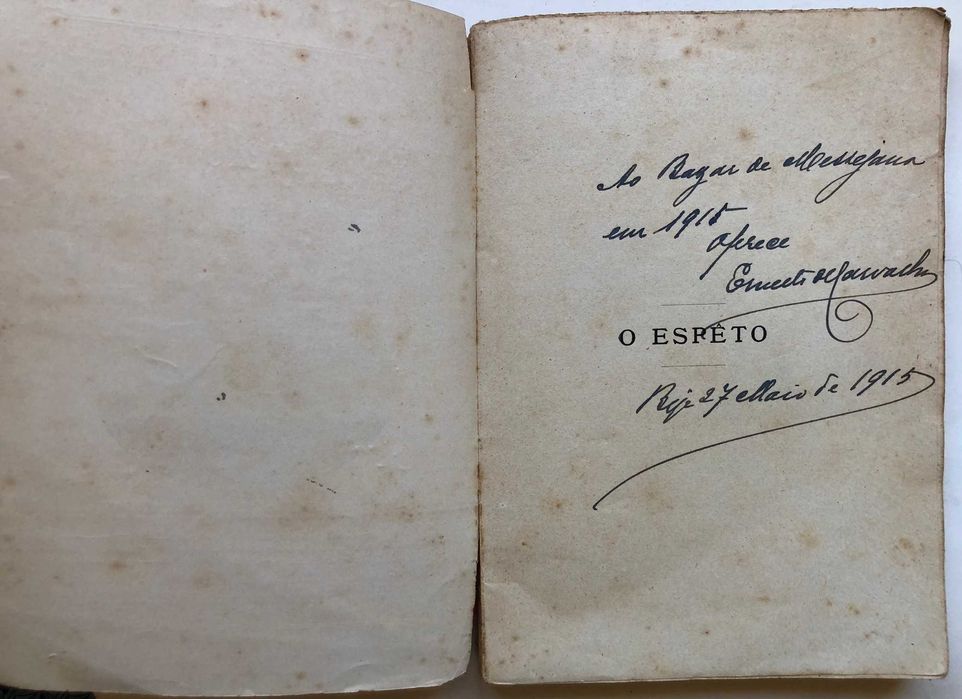 Ao Bazar de Messejana
em 1915
Oferece
Ernesto de Carvalho
O ESPÊTO
27 Maio de 1915